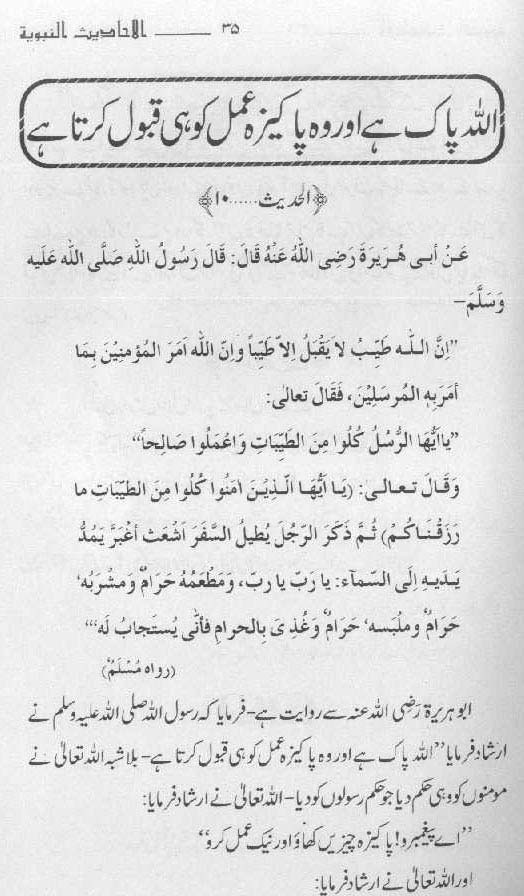 الاحادیث النبویة ——— ۳۵
اللہ پاک ہے اور وہ پاکیزہ عمل کو ہی قبول کرتا ہے
﴿الحدیث.....۱۰﴾
عَنْ أبی هُرَیرَةَ رَضِی اللهُ عَنْهُ قَالَ: قَالَ رَسُولُ اللهِ صَلَّى الله عَلَیه
وَسَلَّمَ–
”اِنَّ اللّٰه طَیِّبٌ لاَ یَقْبَلُ اِلاّ طَیِّباً وَاِنَّ الله اَمَرَ المُؤمنِیْنَ بِمَا
اَمَرَ بِهٖ المُرسَلِیْنَ، فَقَالَ تعالیٰ:
”یااَیُّهَا الرُّسُلُ کُلُوا مِنَ الطَّیِّبَاتِ وَاعْمَلُوا صَالِحاً“
وَقَالَ تعالیٰ: (یَا اَیُّهَا الَّذِیْنَ اٰمَنُوا کُلُوا مِنَ الطَّیِّبَاتِ ما
رَزَقْنَاکُمْ) ثُمَّ ذَکَرَ الرَّجُلَ یُطیلُ السَّفَرَ اَشْعَثَ أغْبَرَ یَمُدُّ
یَدَیهِ اِلَی السَّمآء: یا رَبّ یا ربّ، وَمَطْعَمُهُ حَرَامٌ وَمَشْرَبُه‘
حَرَامٌ وملْبَسه‘ حَرَامٌ وَغُذِیَ بِالحرامِ فَأنّٰی یُستَجابُ لَه‘“
(رواہ مُسْلِمٌ)
ابو ہریرۃ رَضِی اللہ عنہ سے روایت ہے– فرمایا کہ رسول اللہ صلی اللہ علیہ وسلم نے
ارشاد فرمایا ”اللہ پاک ہے اور وہ پاکیزہ عمل کو ہی قبول کرتا ہے– بلا شبہ اللہ تعالیٰ نے
مومنوں کو وہی حکم دیا جو حکم رسولوں کو دیا– اللہ تعالیٰ نے ارشاد فرمایا:
”اے پیغمبرو! پاکیزہ چیزیں کھاؤ اور نیک عمل کرو“
اور اللہ تعالیٰ نے ارشاد فرمایا: